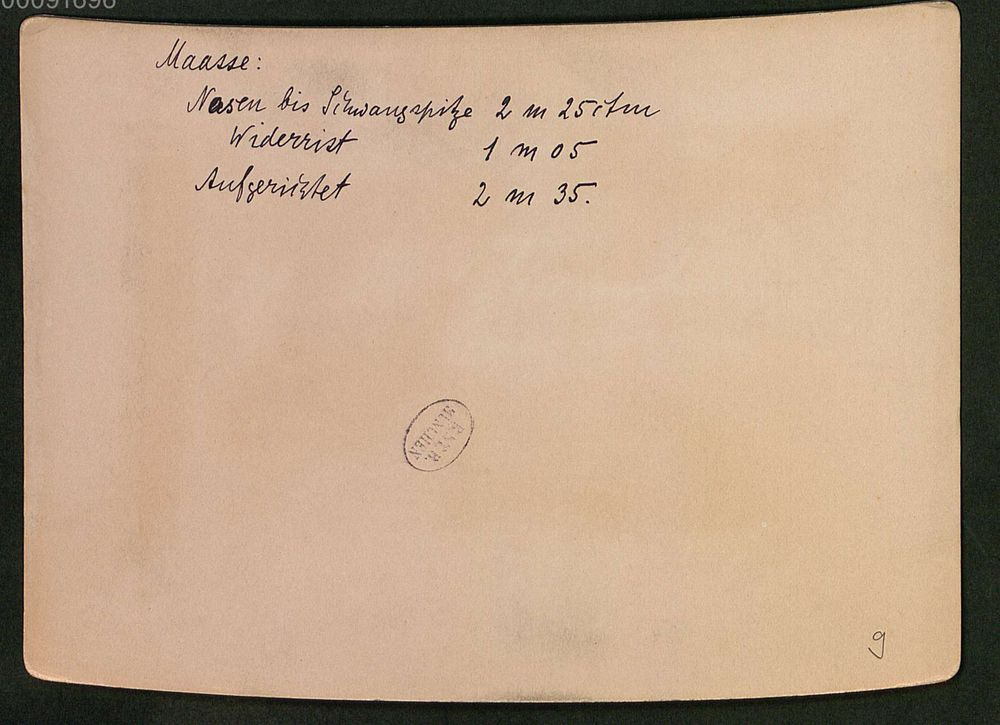 00091696
Maasse:
Nasen bis Schwangspitze 2 m 25 ctm
Widerrist 1 m 05
Aufgerichtet 2 m 35.
MÜNCHEN
9